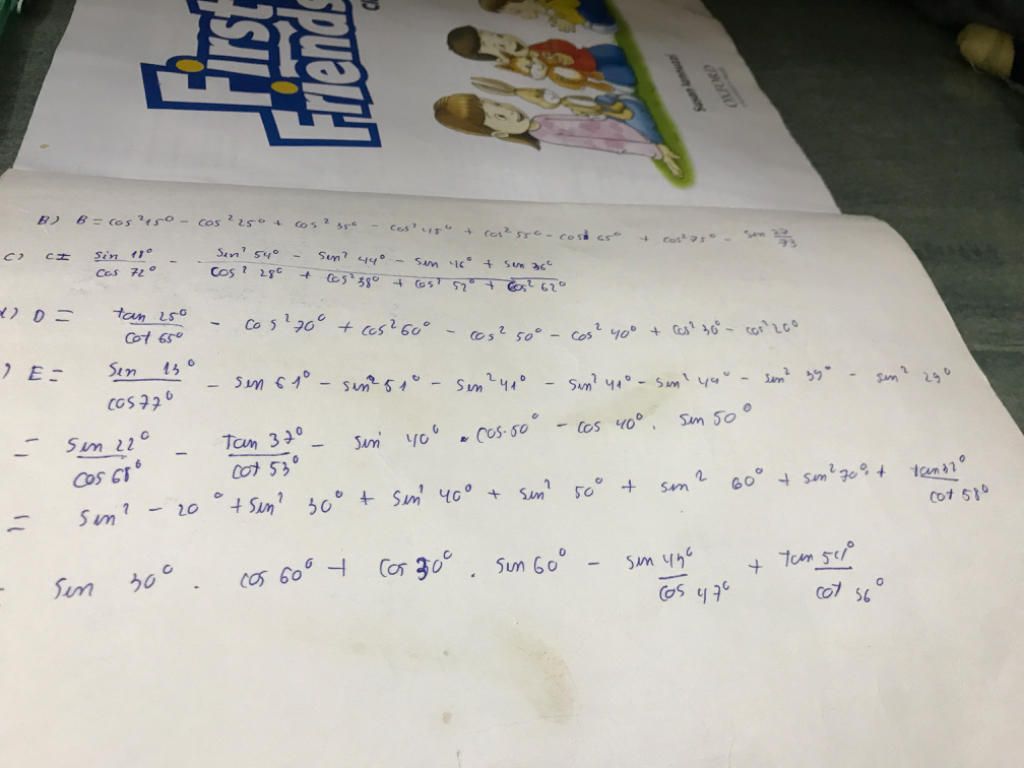 First
Friends
Susan Iannuzzi
OXFORD
B) B = cos²15° - cos²25° + cos²35° - cos²45° + cos²55° - cos² 65° + cos²75° - sin 27/73
C) C = sin 18°/cos 72° - (sin² 54° - sin² 44° - sin 46° + sin 36°)/(cos² 28° + cos²38° + cos² 52° + cos² 62°)
) D = tan 25°/cot 65° - cos²70° + cos²60° - cos² 50° - cos² 40° + cos² 30° - cos² 20°
) E = sin 13°/cos77° - sin 61° - sin²51° - sin²41° - sin² 41° - sin² 49° - sin² 39° - sin² 29°
= sin 22°/cos 68° - tan 37°/cot 53° - sin 40° . cos 50° - cos 40° . sin 50°
= sin² - 20° + sin² 30° + sin² 40° + sin² 50° + sin² 60° + sin² 70° + tan 32°/cot 58°
sin 30° . cos 60° + cos 30° . sin 60° - sin 43°/cos 47° + tan 54°/cot 36°